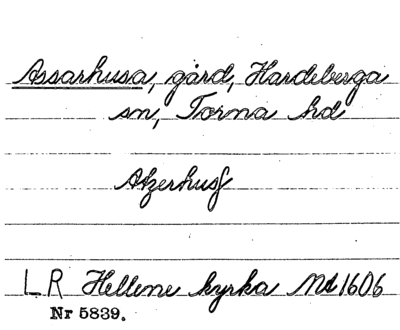 Assarhusa, gård, Hardeberga
sn, Torna hd
Atzerhusf
LR Hellene kyrka Md 1606
Nr 5839.